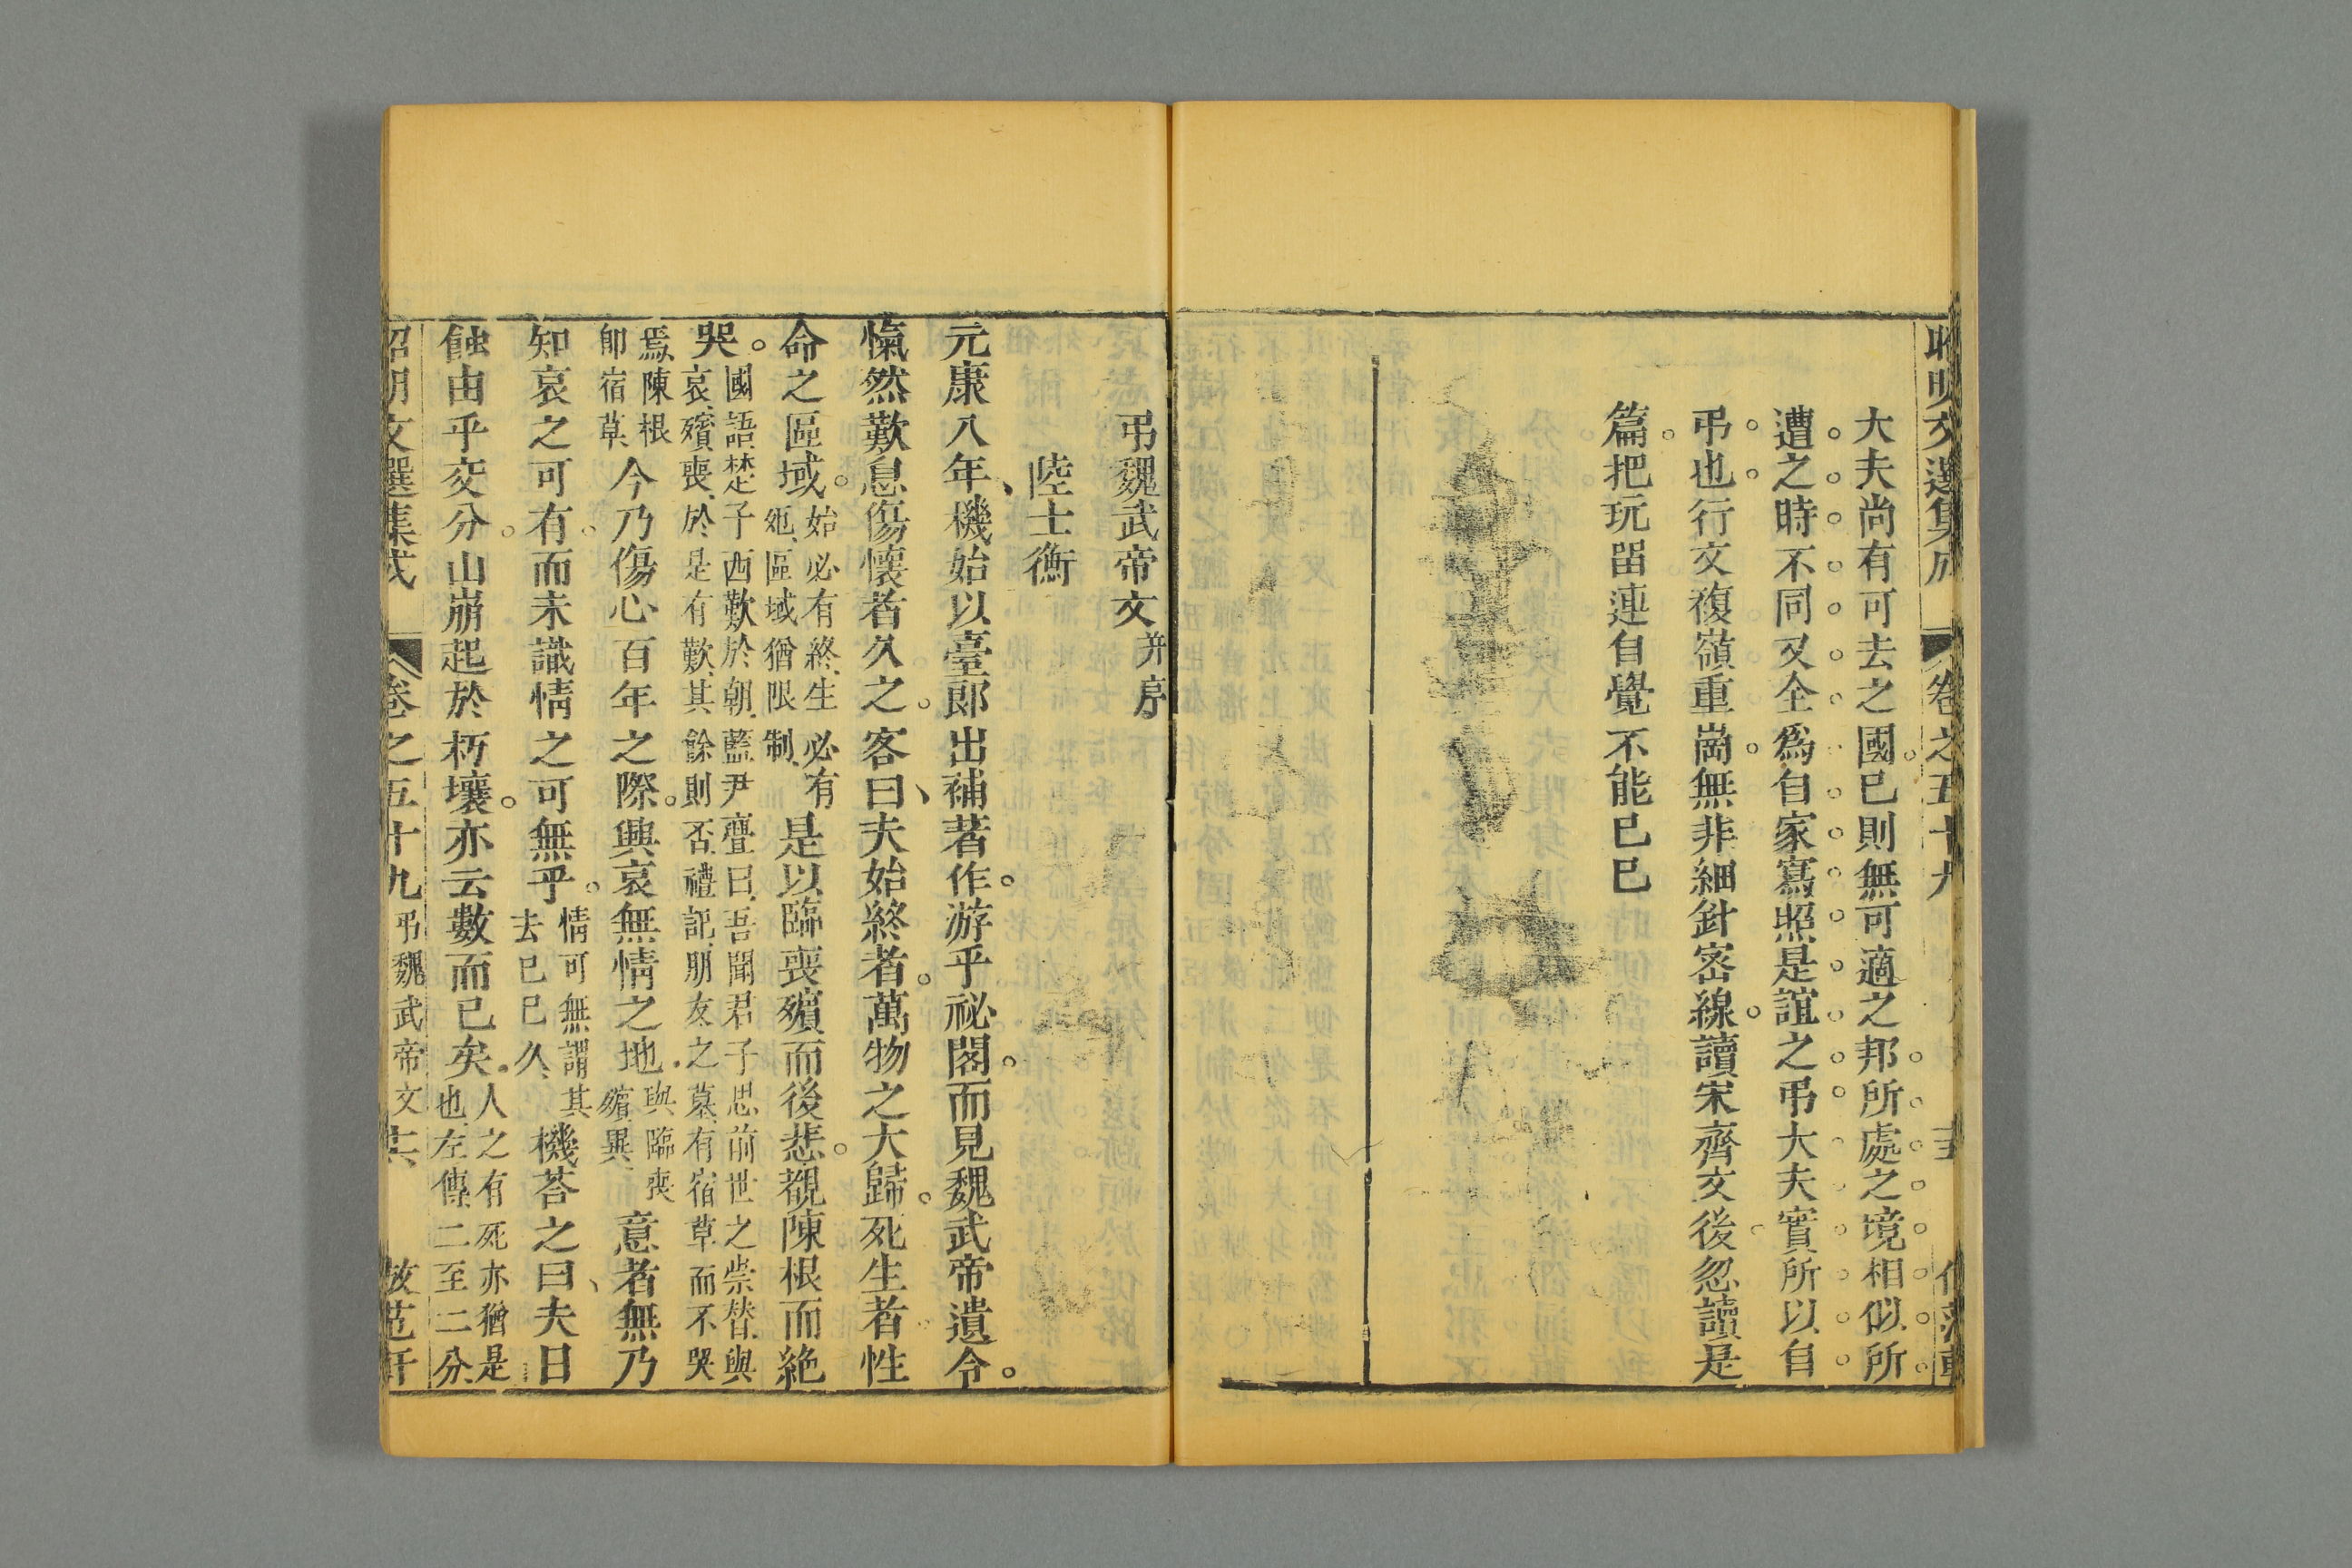 昭明文選集成 卷之五十九
大夫尚有可去之國已則無可適之邦所處之境相似所
遭之時不同又全爲自家寫照是誼之弔大夫實所以自
弔也行文複嶺重崗無非細針密線讀宋齊文後忽讀是
篇把玩留連自覺不能已已
弔魏武帝文并序
陸士衡
元康八年機始以臺郎出補著作游乎祕閣而見魏武帝遺令
愾然歎息傷懷者久之客曰夫始終者萬物之大歸死生者性
命之區域始必有終生必有死區域猶限制是以臨喪殯而後悲覩陳根而絶
哭國語楚子西歎於朝藍尹亹曰吾聞君子思前世之崇替與哀殯喪於是有歎其餘則否禮記朋友之墓有宿草而不哭
焉陳根卽宿草今乃傷心百年之際興哀無情之地與臨喪殯異意者無乃
知哀之可有而未識情之可無乎情可無謂其去已已久機荅之曰夫日
蝕由乎交分山崩起於朽壤亦云數而已矣人之有死亦猶是也左傳二至二分
昭明文選集成 卷之五十九 弔魏武帝文 䒑 倣范軒